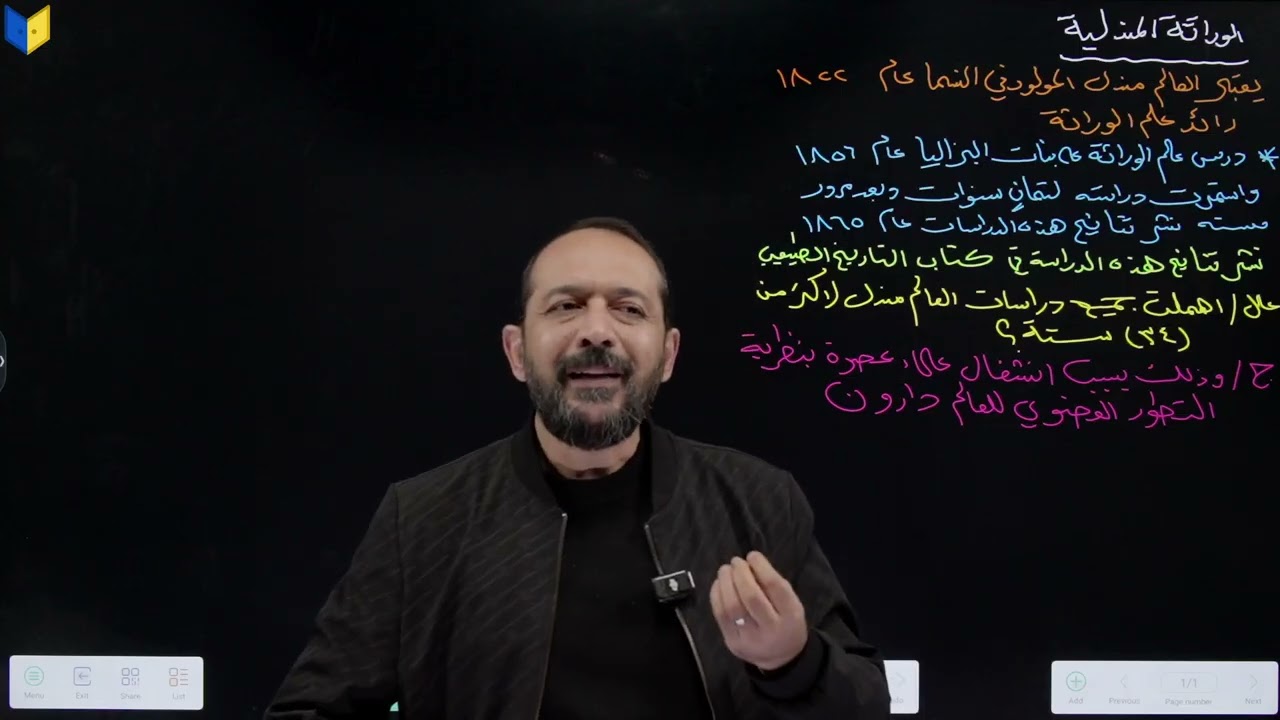 الوراثة المندلية
يعتبر العالم مندل المولود في النمسا عام ١٨٢٢
رائد علم الوراثة
* درس علم الوراثة على نبات البزاليا عام ١٨٥٦
واستمرت دراسته لثمان سنوات وبعد مرور
سنة نشر نتائج هذه الدراسات عام ١٨٦٥
نشر نتائج هذه الدراسة في كتاب التاريخ الطبيعي
علل / اهملت جميع دراسات العالم مندل لاكثر من
(٣٤) سنة ؟
ج / وذلك بسبب انشغال علماء عصره بنظرية
التطور العضوي للعالم دارون
Menu
Exit
Share
List
Add
Previous
1/1
Page number
Next